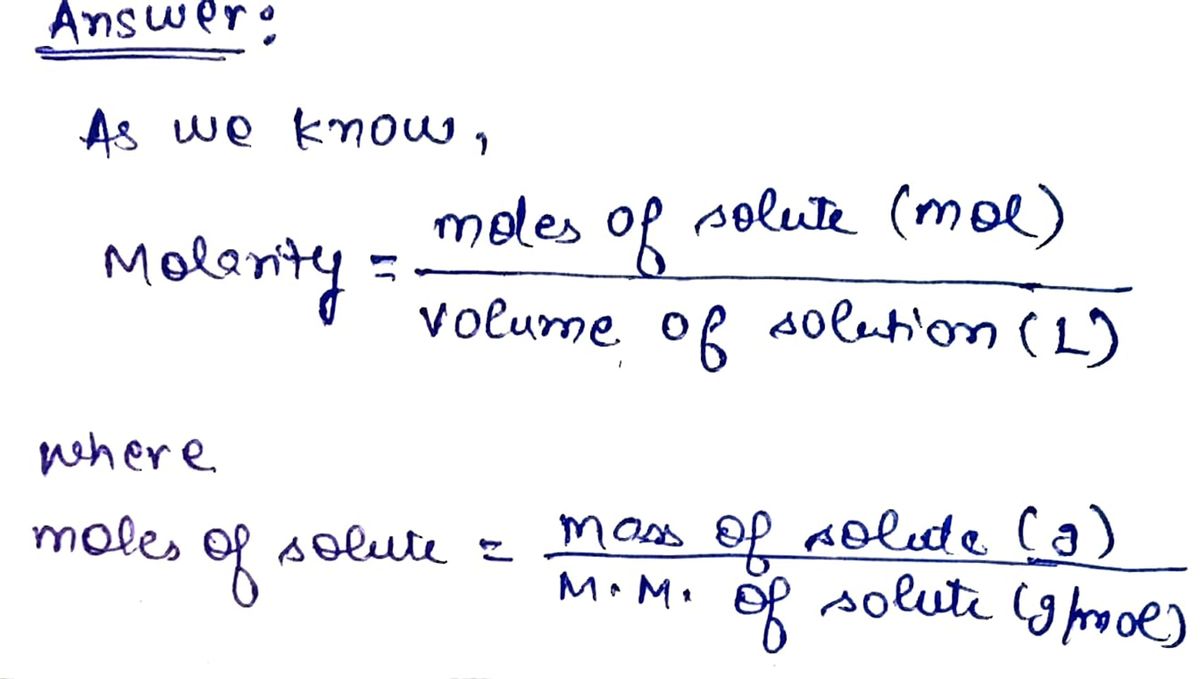 Answer:
As we know,
Molarity = moles of solute (mol) / volume of solution (L)
where
moles of solute = mass of solute (g) / M.M. of solute (g/mol)